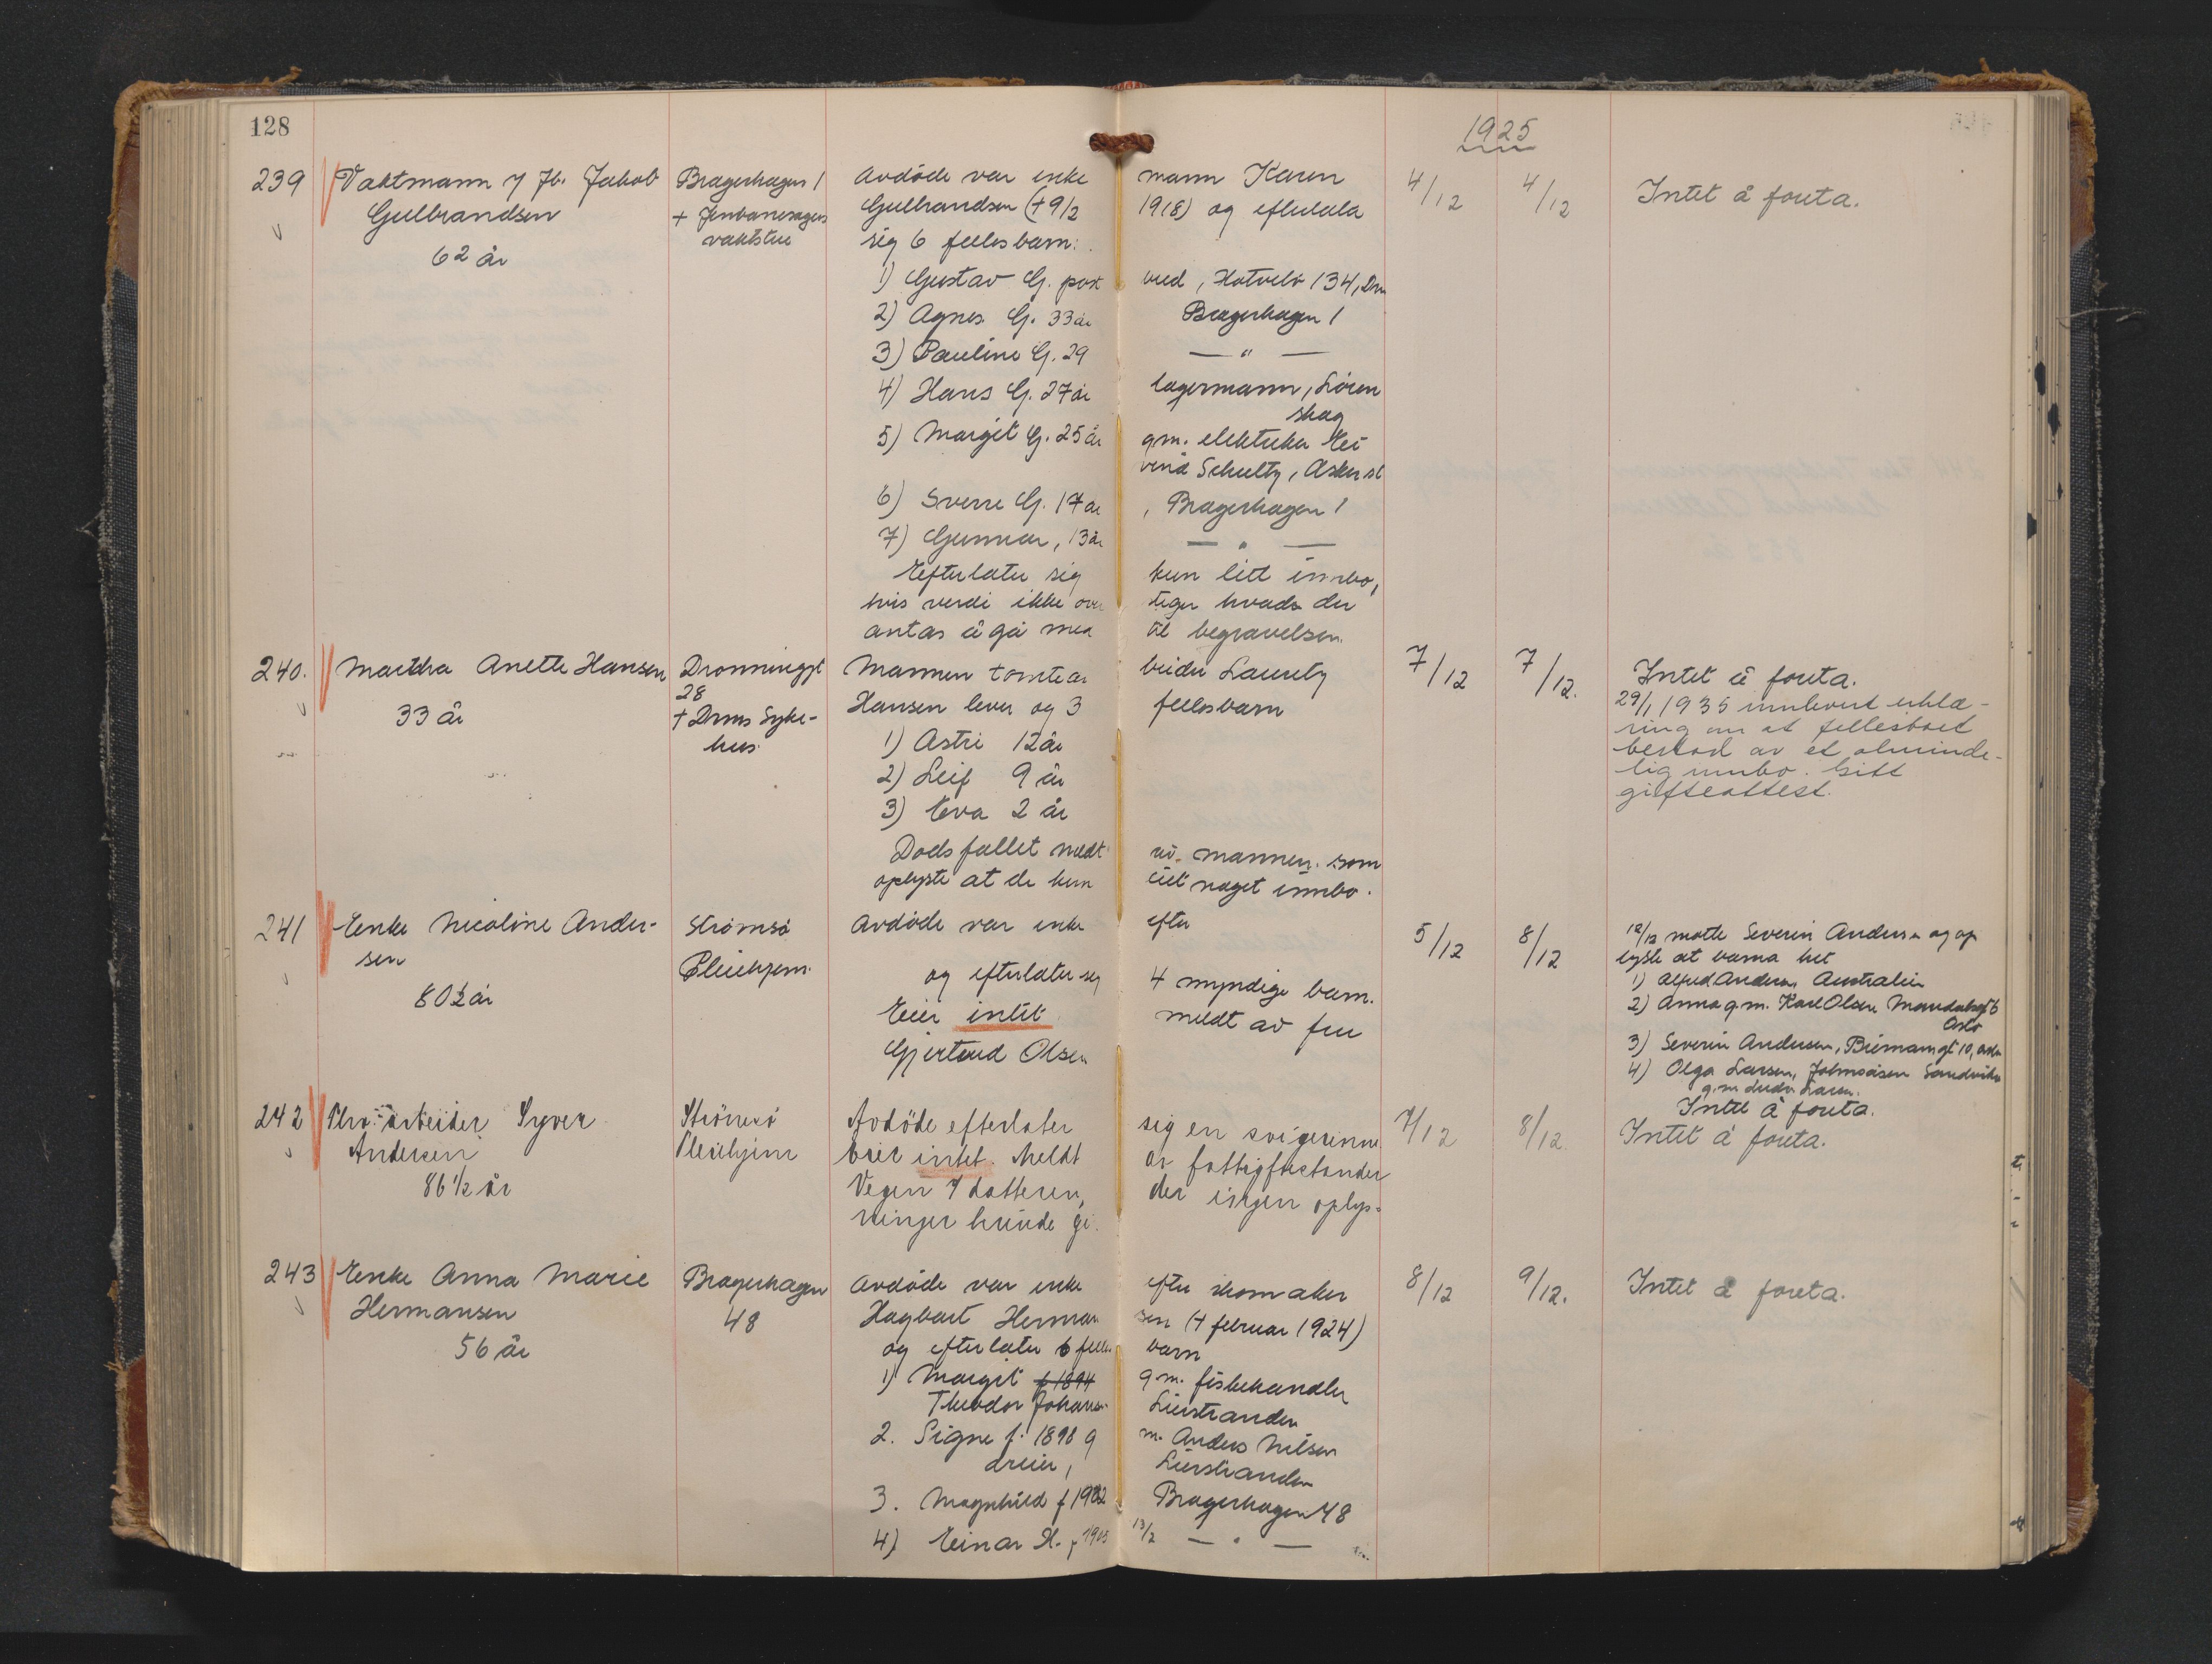 128
1925
239 Vaktmann v/ Jb. Jakob
Gulbrandsen
62 år
Bragerhagen 1
+ Jernbanens
vaktstue
Avdöde var enke mann Karen
Gulbrandsen (+ 9/2 1918) og efterlata
sig 6 felles barn:
1) Gustav G. post bud, Hotvelv 134, Drm
2) Agnes G. 33 år Bragerhagen 1
3) Pauline G. 29 — " —
4) Hans G. 27 år lagermann, Lören
skog
5) Margit G. 25 år g.m. elektriker Ei
vind Schultz, Asker st
6) Sverre G. 17 år , Bragerhagen 1
7) Gunnar, 13 år — " —
Efterlater sig kun litt innbo,
hvis verdi ikke over stiger hvad der
antas å gå med til begravelsen.
4/12 4/12 Intet å foreta.
240. Martha Anette Hansen
33 år
Dronninggt
28
+ Drms Syke-
hus.
Mannen tomtear beider Lauritz
Hansen lever og 3 fellesbarn
1) Astri 12 år
2) Leif 9 år
3) Eva 2 år
Dødsfallet meldt av mannen som
oplyste at de kun eiet noget innbo.
7/12 7/12. Intet å foreta.
29/1 1935 innlevert erklæ-
ring om at fellesboet
bestod av et alminde-
lig innbo. Gitt
gifteattest.
241 Enke Nicoline Ander-
sen
80½ år
Strömsö
Pleiehjem.
Avdöde var enke efter
og efterlater sig 4 myndige barn.
Eier intet. meldt av fru
Gjertrud Olsen
5/12 8/12
12/12 møtte Severin Andersen og op
lyste at barna het
1) Alfred Andersen, Australien
2) Anna g.m. Karl Olsen Mandalsgt 6
Oslo
3) Severin Andersen, Biermannsgt 10, Oslo
4) Olga Larsen, Sandvika
g.m. Ludv. Larsen.
Intet å foreta.
242 Arbeider Syver
Andersen
86 1/2 år
Strömsö
Pleiehjem
Avdöde efterlater sig en svigerinne
Eier intet. Meldt av fattigforstander
Vegen v/ datteren, der ingen oplys-
ninger kunde gi.
7/12 8/12. Intet å foreta.
243 Enke Anna Marie
Hermansen
56 år
Bragerhagen
48
Avdöde var enke efter skomaker
Hagbart Herman sen (4 februar 1924)
og efterlater 6 felles barn
1) Margit f 1894 g.m. fiskehandler
Theodor Johansen Lierstranden
2. Signe f. 1898 g m. Anders Nilsen
dreier, Lierstranden
3. Magnhild f 1902 Bragerhagen 48
4) Einar H. f 1905 13/2 — " —
8/12 9/12. Intet å foreta.